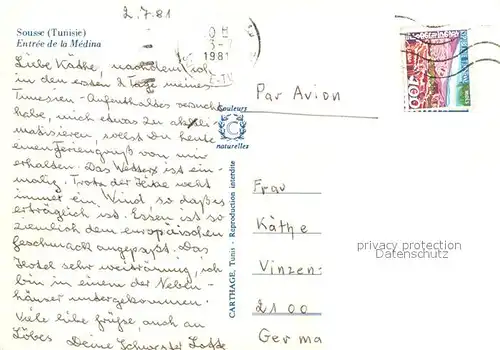 2.7.81
Sousse (Tunisie)
Entrée de la Médina
1981
Liebe Käthe, nachdem ich
in den ersten 2 Tage meines
Tunesien-Aufenthaltes versucht
habe, mich etwas zu akkli-
matisieren, sollst Du heute
einen Feriengruß von mir
erhalten. Das Wetter ist ein-
malig. Trotz der Hitze weht
immer ein Wind, so daß es
erträglich ist. Essen ist so
ziemlich dem europäischen
Geschmack angepaßt. Das
Hotel sehr weiträumig, ich
bin in einem der Neben-
häuser untergekommen.
Viele liebe Grüße, auch an
Löbes Deine Schwester Lotte
Couleurs
C
naturelles
CARTHAGE, Tunis - Reproduction interdite
Par Avion
100
Frau
Käthe
Vinzen
2100
Germa
privacy protection
Datenschutz